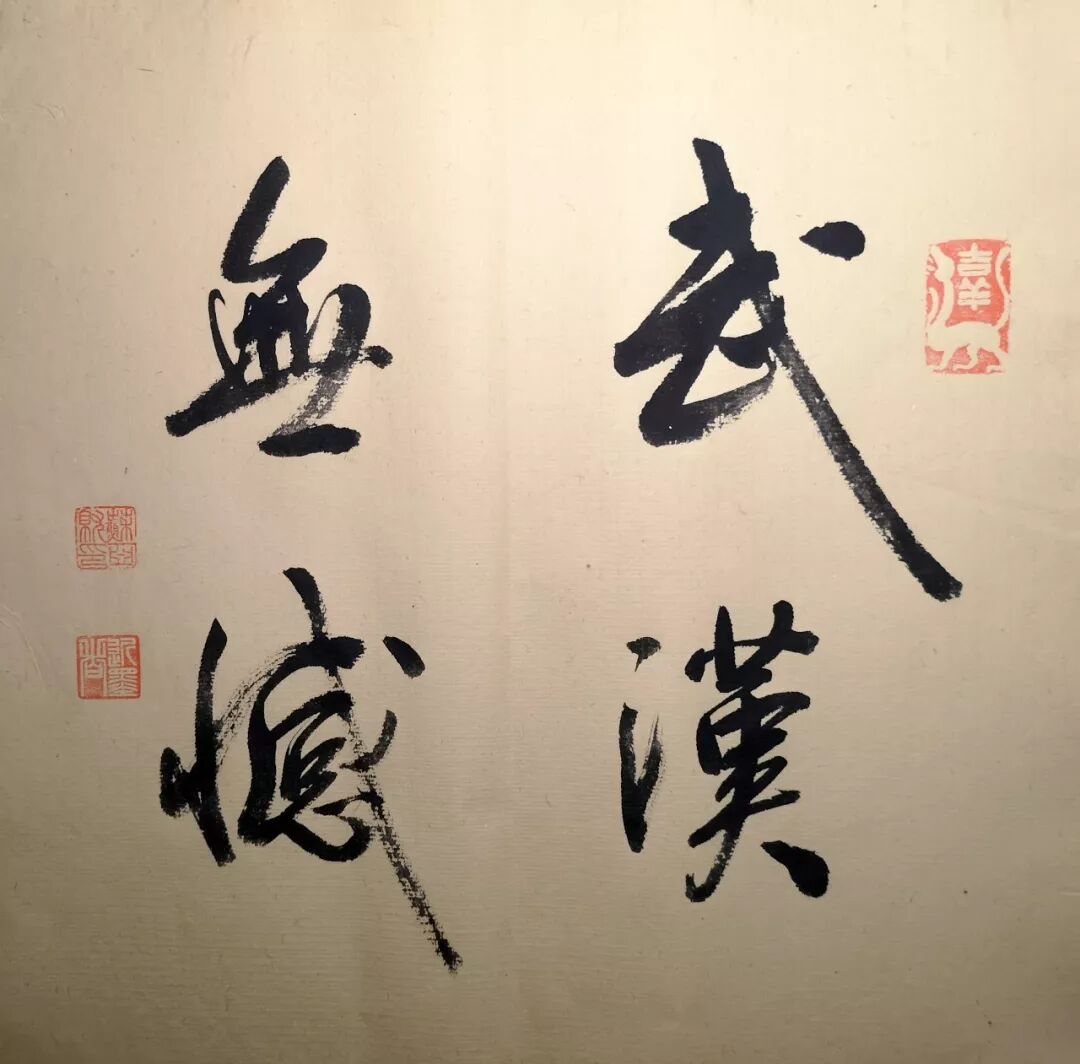 武漢
無憾